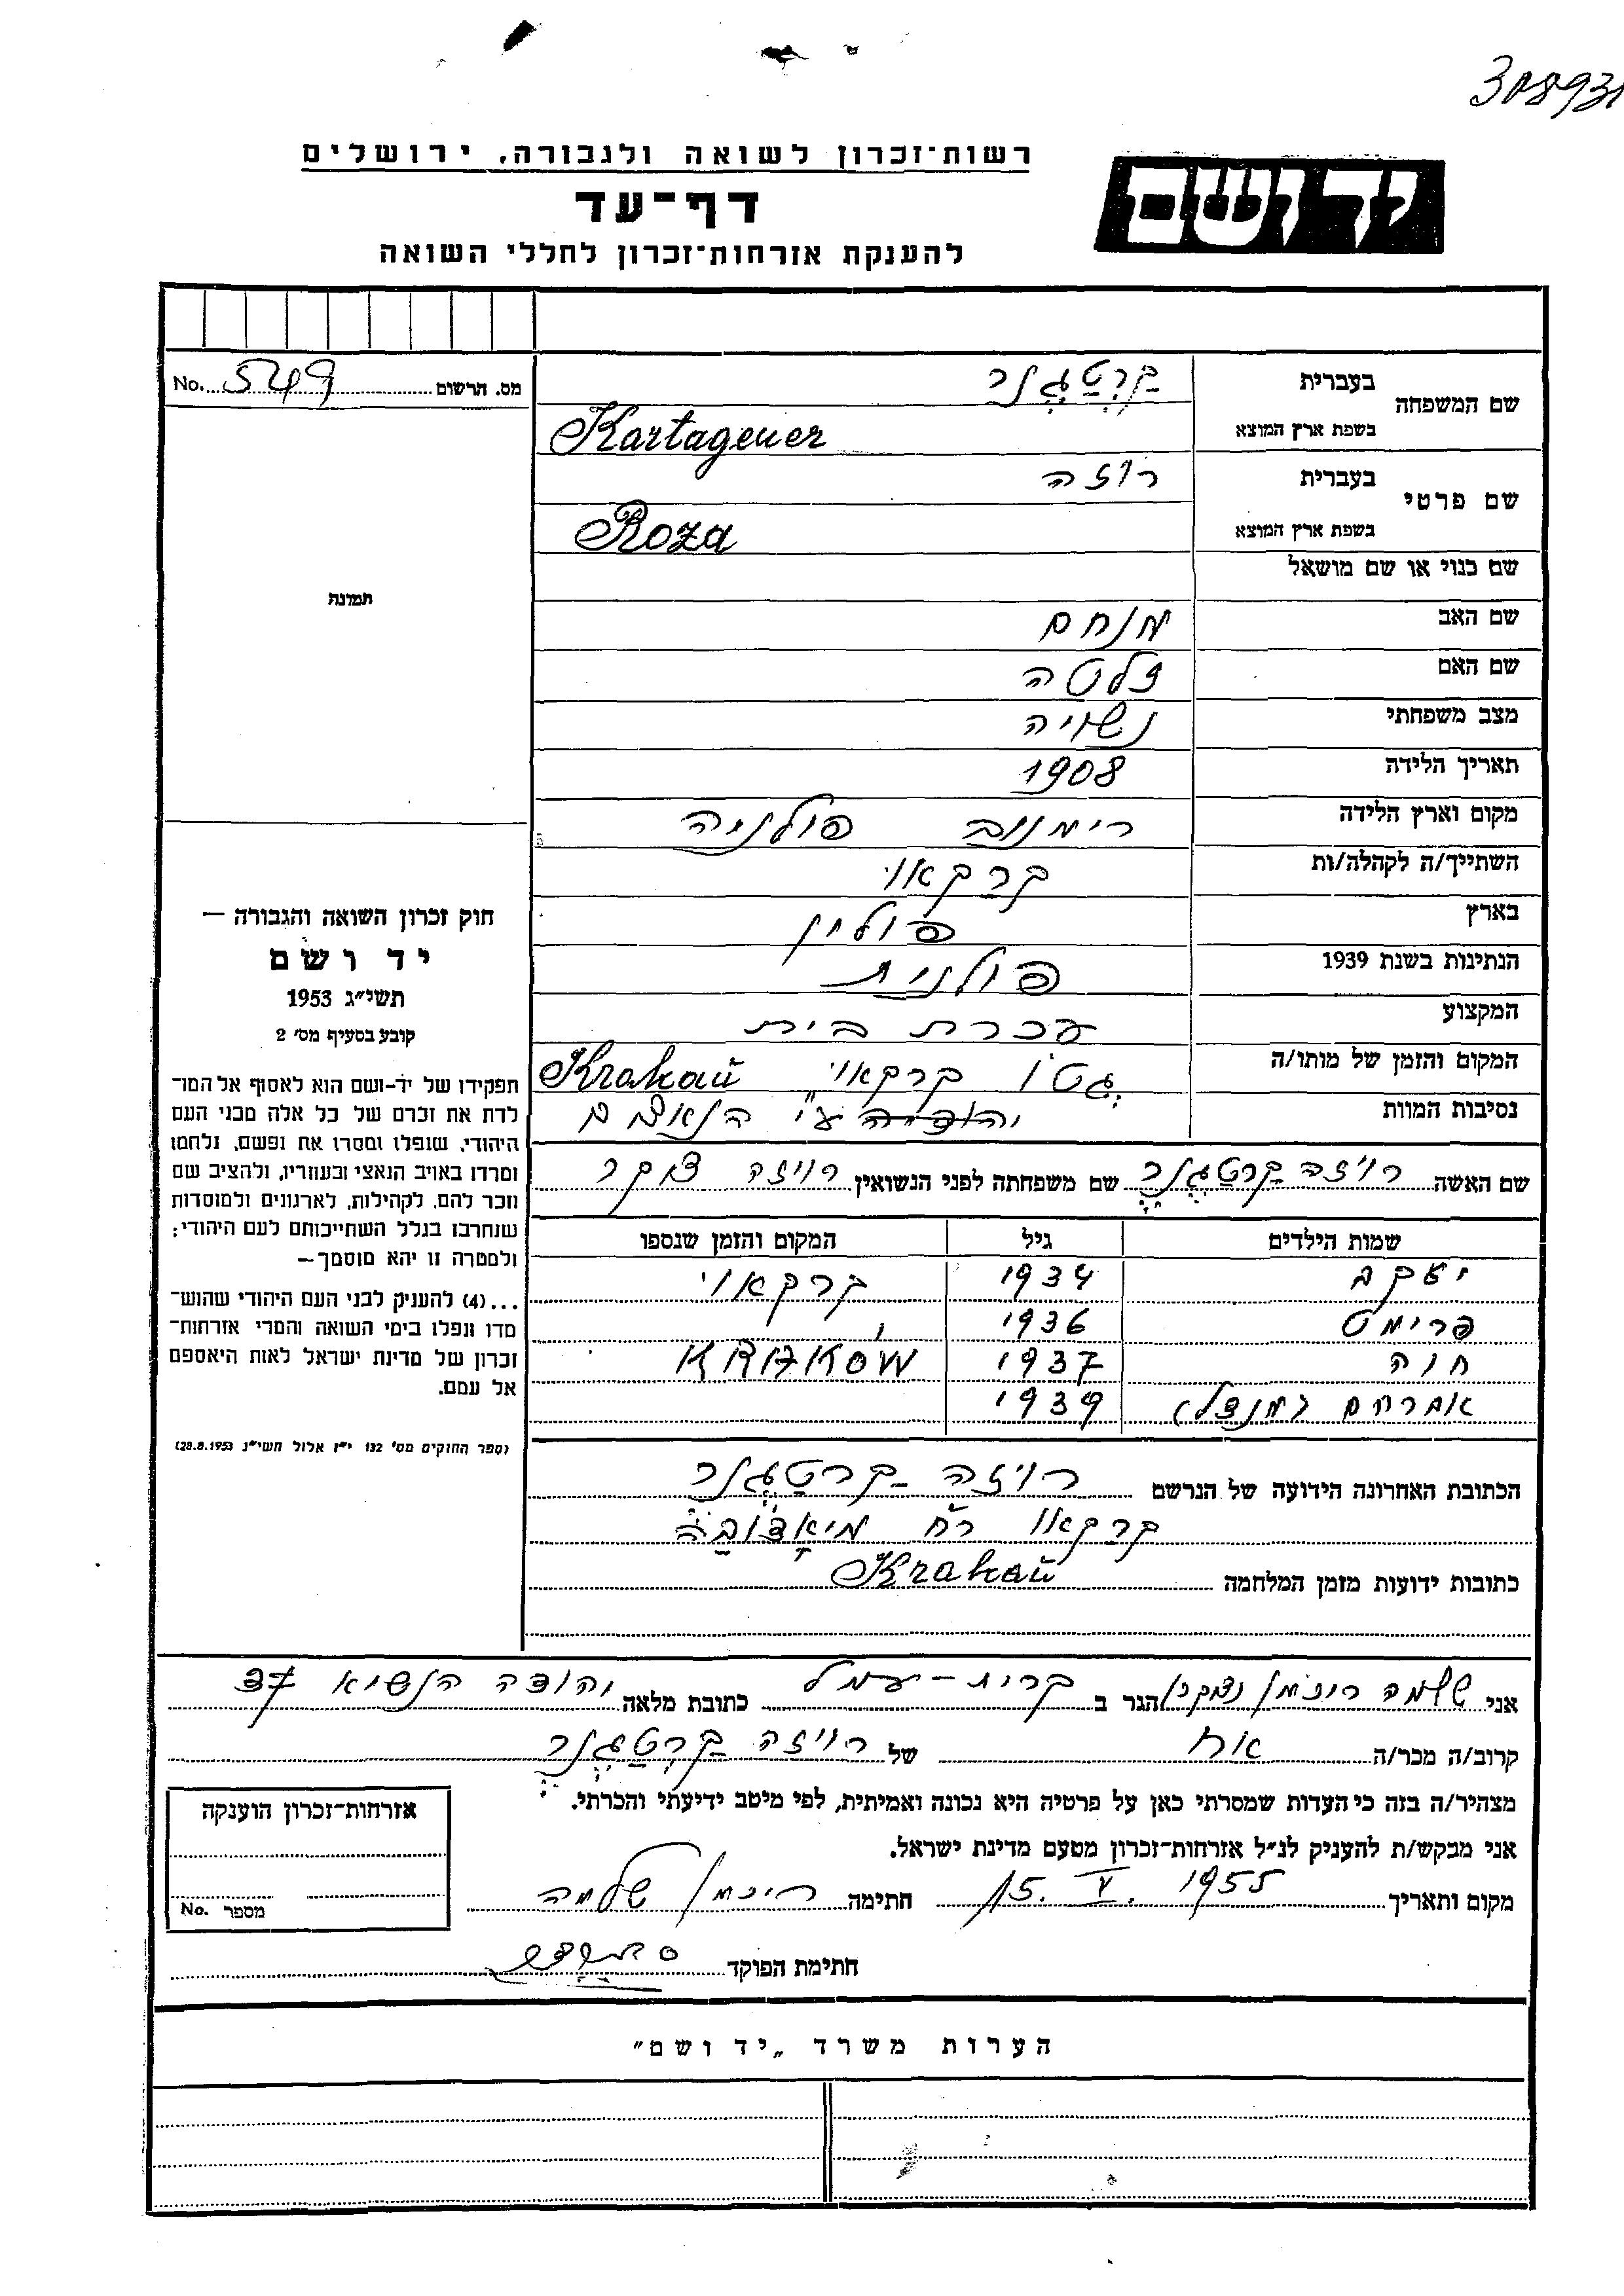 308931
רשות־זכרון לשואה ולגבורה, ירושלים
יד ושם
דף־עד
להענקת אזרחות־זכרון לחללי השואה
מס. הרשום 549 No.
שם המשפחה בעברית קרטגנר
בשפת ארץ המוצא Kartagener
שם פרטי בעברית רוזה
בשפת ארץ המוצא Roza
שם כנוי או שם מושאל
שם האב מנחם
שם האם זלטה
מצב משפחתי נשויה
תאריך הלידה 1908
מקום וארץ הלידה רימנוב פולניה
השתייך/ה לקהלה/ות קרקאוי
בארץ פולין
הנתינות בשנת 1939 פולנית
המקצוע עכרת בית
המקום והזמן של מותו/ה גטו קרקאוי Krakaŭ
נסיבות המוות ע"י הנאצים
שם האשה רויזה קרטגנר שם משפחתה לפני הנשואין רויזה
שמות הילדים גיל המקום והזמן שנספו
יעקב 1934 קרקאוי
פרימט 1936
חוה 1937 KRAKÓW
אברהם (מנדל) 1939
הכתובת האחרונה הידועה של הנרשם רויזה קרטגנר
קרקאו רח
כתובות ידועות מזמן המלחמה Krakaŭ
תמונה
חוק זכרון השואה והגבורה —
יד ושם
תשי״ג 1953
קובע בסעיף מס׳ 2
תפקידו של יד-ושם הוא לאסוף אל המו־
לדת את זכרם של כל אלה מבני העם
היהודי, שנפלו ומסרו את נפשם, נלחמו
ומרדו באויב הנאצי ובעוזריו, ולהציב שם
וזכר להם, לקהילות, לארגונים ולמוסדות
שנחרבו בגלל השתייכותם לעם היהודי;
ולמטרה זו יהא מוסמך—
...(4) להעניק לבני העם היהודי שהוש־
מדו ונפלו בימי השואה והמרי אזרחות־
זכרון של מדינת ישראל לאות היאספם
אל עמם.
(ספר החוקים מס׳ 132 י״ז אלול תשי״ג 28.8.1953)
אני שלמה הגר ב קרית-עמל כתובת מלאה יהודה הנשיא 37
קרוב/ה מכר/ה אח של רויזה קרטגנר
מצהיר/ה בזה כי העדות שמסרתי כאן על פרטיה היא נכונה ואמיתית, לפי מיטב ידיעתי והכרתי.
אני מבקש/ת להעניק לנ״ל אזרחות־זכרון מטעם מדינת ישראל.
מקום ותאריך 15. V. 1955 חתימה שלמה
חתימת הפוקד
אזרחות־זכרון הוענקה
מספר No.
הערות משרד „יד ושם״